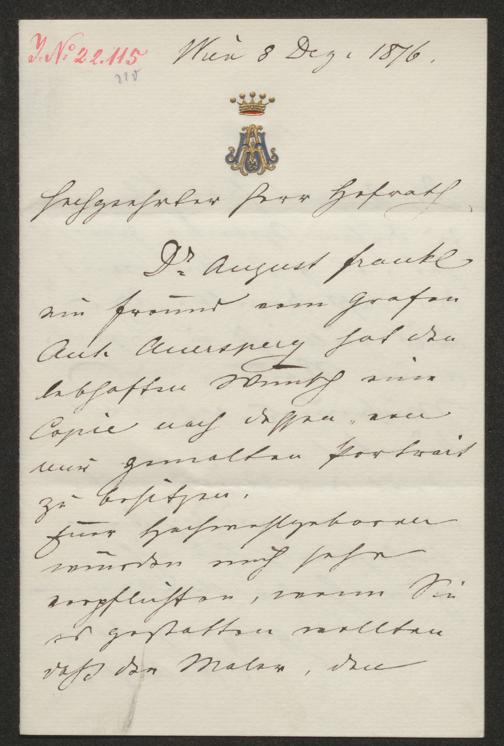 J. No 22.115
Wien 8 Dez. 1876.
Hochgeehrter Herr Hofrath
Dr. August Frankl
ein Freund vom Grafen
Ant. Auersperg hat den
lebhaften Wunsch eine
Copie nach dessen, von
mir gemalten Portrait
zu besitzen.
Euer Hochwohlgeboren
würden mich sehr
verpflichten, wenn Sie
es gestatten wollten
daß der Maler, den